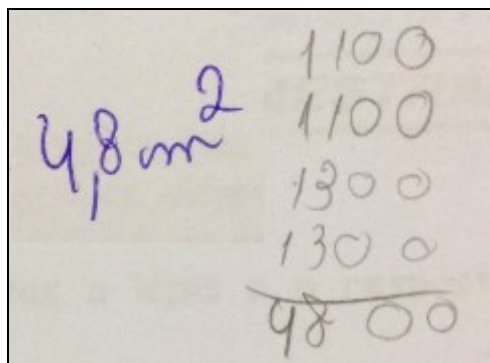 4,8 m²
1100
1100
1300
1300
4800